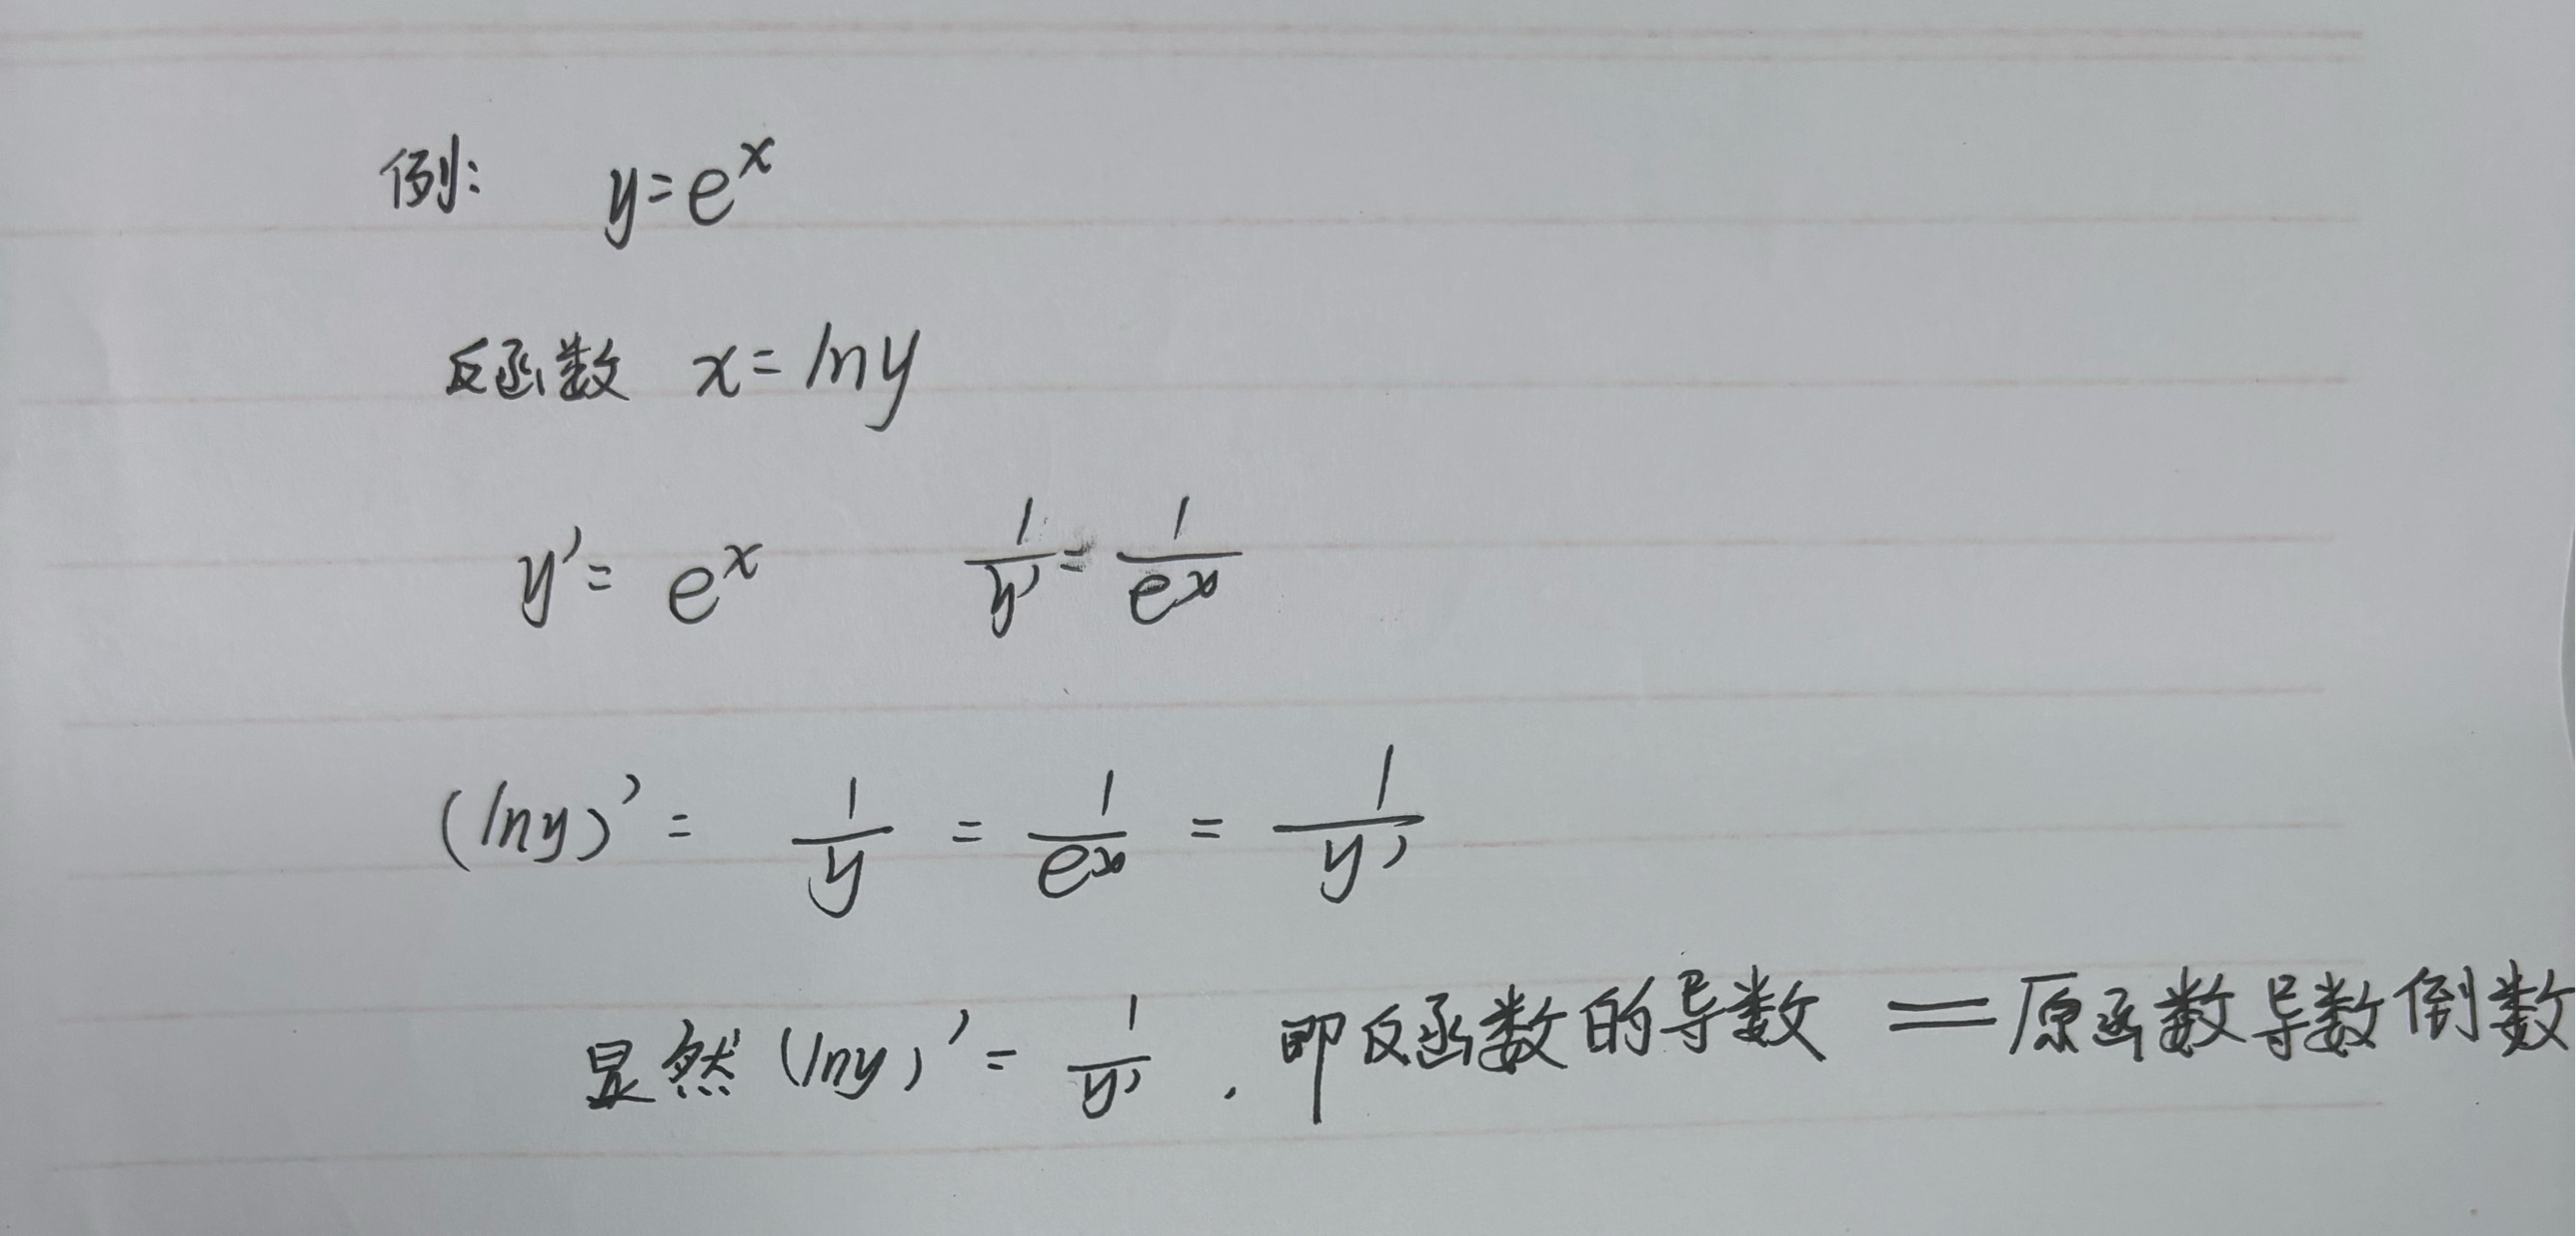 例: y=e^x
反函数 x=lny
y'=e^x 1/y'=1/e^x
(lny)'=1/y=1/e^x=1/y'
显然(lny)'=1/y'.即反函数的导数=原函数导数倒数